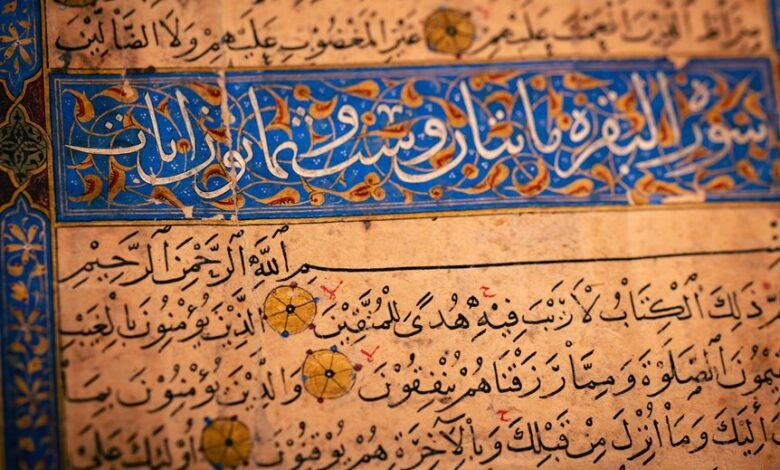 صِرَاطَ الَّذِينَ أَنْعَمْتَ عَلَيْهِمْ غَيْرِ الْمَغْضُوبِ عَلَيْهِمْ وَلَا الضَّالِّينَ
سوره البقره مائتان وست وثمانون ايات
بِسْمِ ٱللَّهِ ٱلرَّحْمَٰنِ ٱلرَّحِيمِ
ذَلِكَ ٱلْكِتَابُ لَا رَيْبَ فِيهِ هُدًى لِلْمُتَّقِينَ الَّذِينَ يُؤْمِنُونَ بِالْغَيْبِ
يمُونَ ٱلصَّلَوٰةَ وَمِمَّا رَزَقْنَاهُمْ يُنْفِقُونَ وَالَّذِينَ يُؤْمِنُونَ بِمَا
إِلَيْكَ وَمَا أُنْزِلَ مِنْ قَبْلِكَ وَبِالْآخِرَةِ هُمْ يُوقِنُونَ أُولَٰئِكَ عَلَىٰ